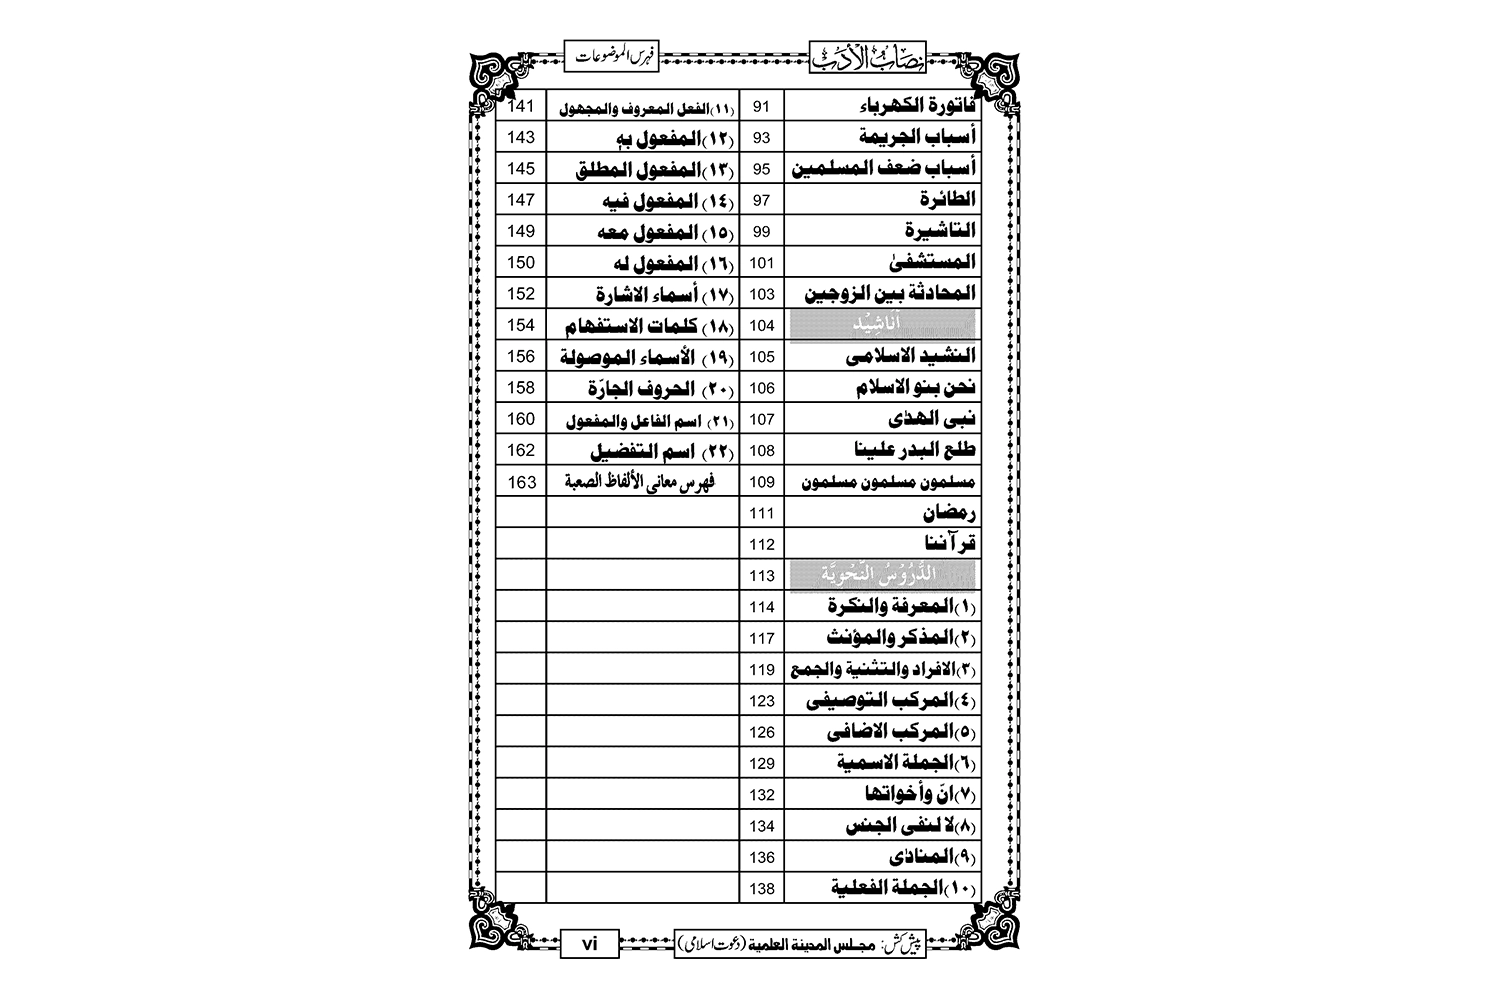 نصاب الأدب
فهرس الموضوعات
فاتورة الكهرباء 91
أسباب الجريمة 93
أسباب ضعف المسلمين 95
الطائرة 97
التاشيرة 99
المستشفىٰ 101
المحادثة بين الزوجين 103
أَنَاشِيْد 104
النشيد الاسلامى 105
نحن بنو الاسلام 106
نبى الهدٰى 107
طلع البدر علينا 108
مسلمون مسلمون مسلمون 109
رمضان 111
قرآننا 112
الدُّرُوْسُ النَّحْوِيَّة 113
(١)المعرفة والنكرة 114
(٢)المذكر والمؤنث 117
(٣)الافراد والتثنية والجمع 119
(٤)المركب التوصيفى 123
(٥)المركب الاضافى 126
(٦)الجملة الاسمية 129
(٧)انّ وأخواتها 132
(٨)لا لنفى الجنس 134
(٩)المنادٰى 136
(١٠)الجملة الفعلية 138
(١١)الفعل المعروف والمجهول 141
(١٢)المفعول به 143
(١٣)المفعول المطلق 145
(١٤) المفعول فيه 147
(١٥) المفعول معه 149
(١٦) المفعول له 150
(١٧) أسماء الاشارة 152
(١٨) كلمات الاستفهام 154
(١٩) الأسماء الموصولة 156
(٢٠) الحروف الجارّة 158
(٢١) اسم الفاعل والمفعول 160
(٢٢) اسم التفضيل 162
فهرس معانى الألفاظ الصعبة 163
پیش کش: مجلس المدينة العلمية (دعوت اسلامی)
vi